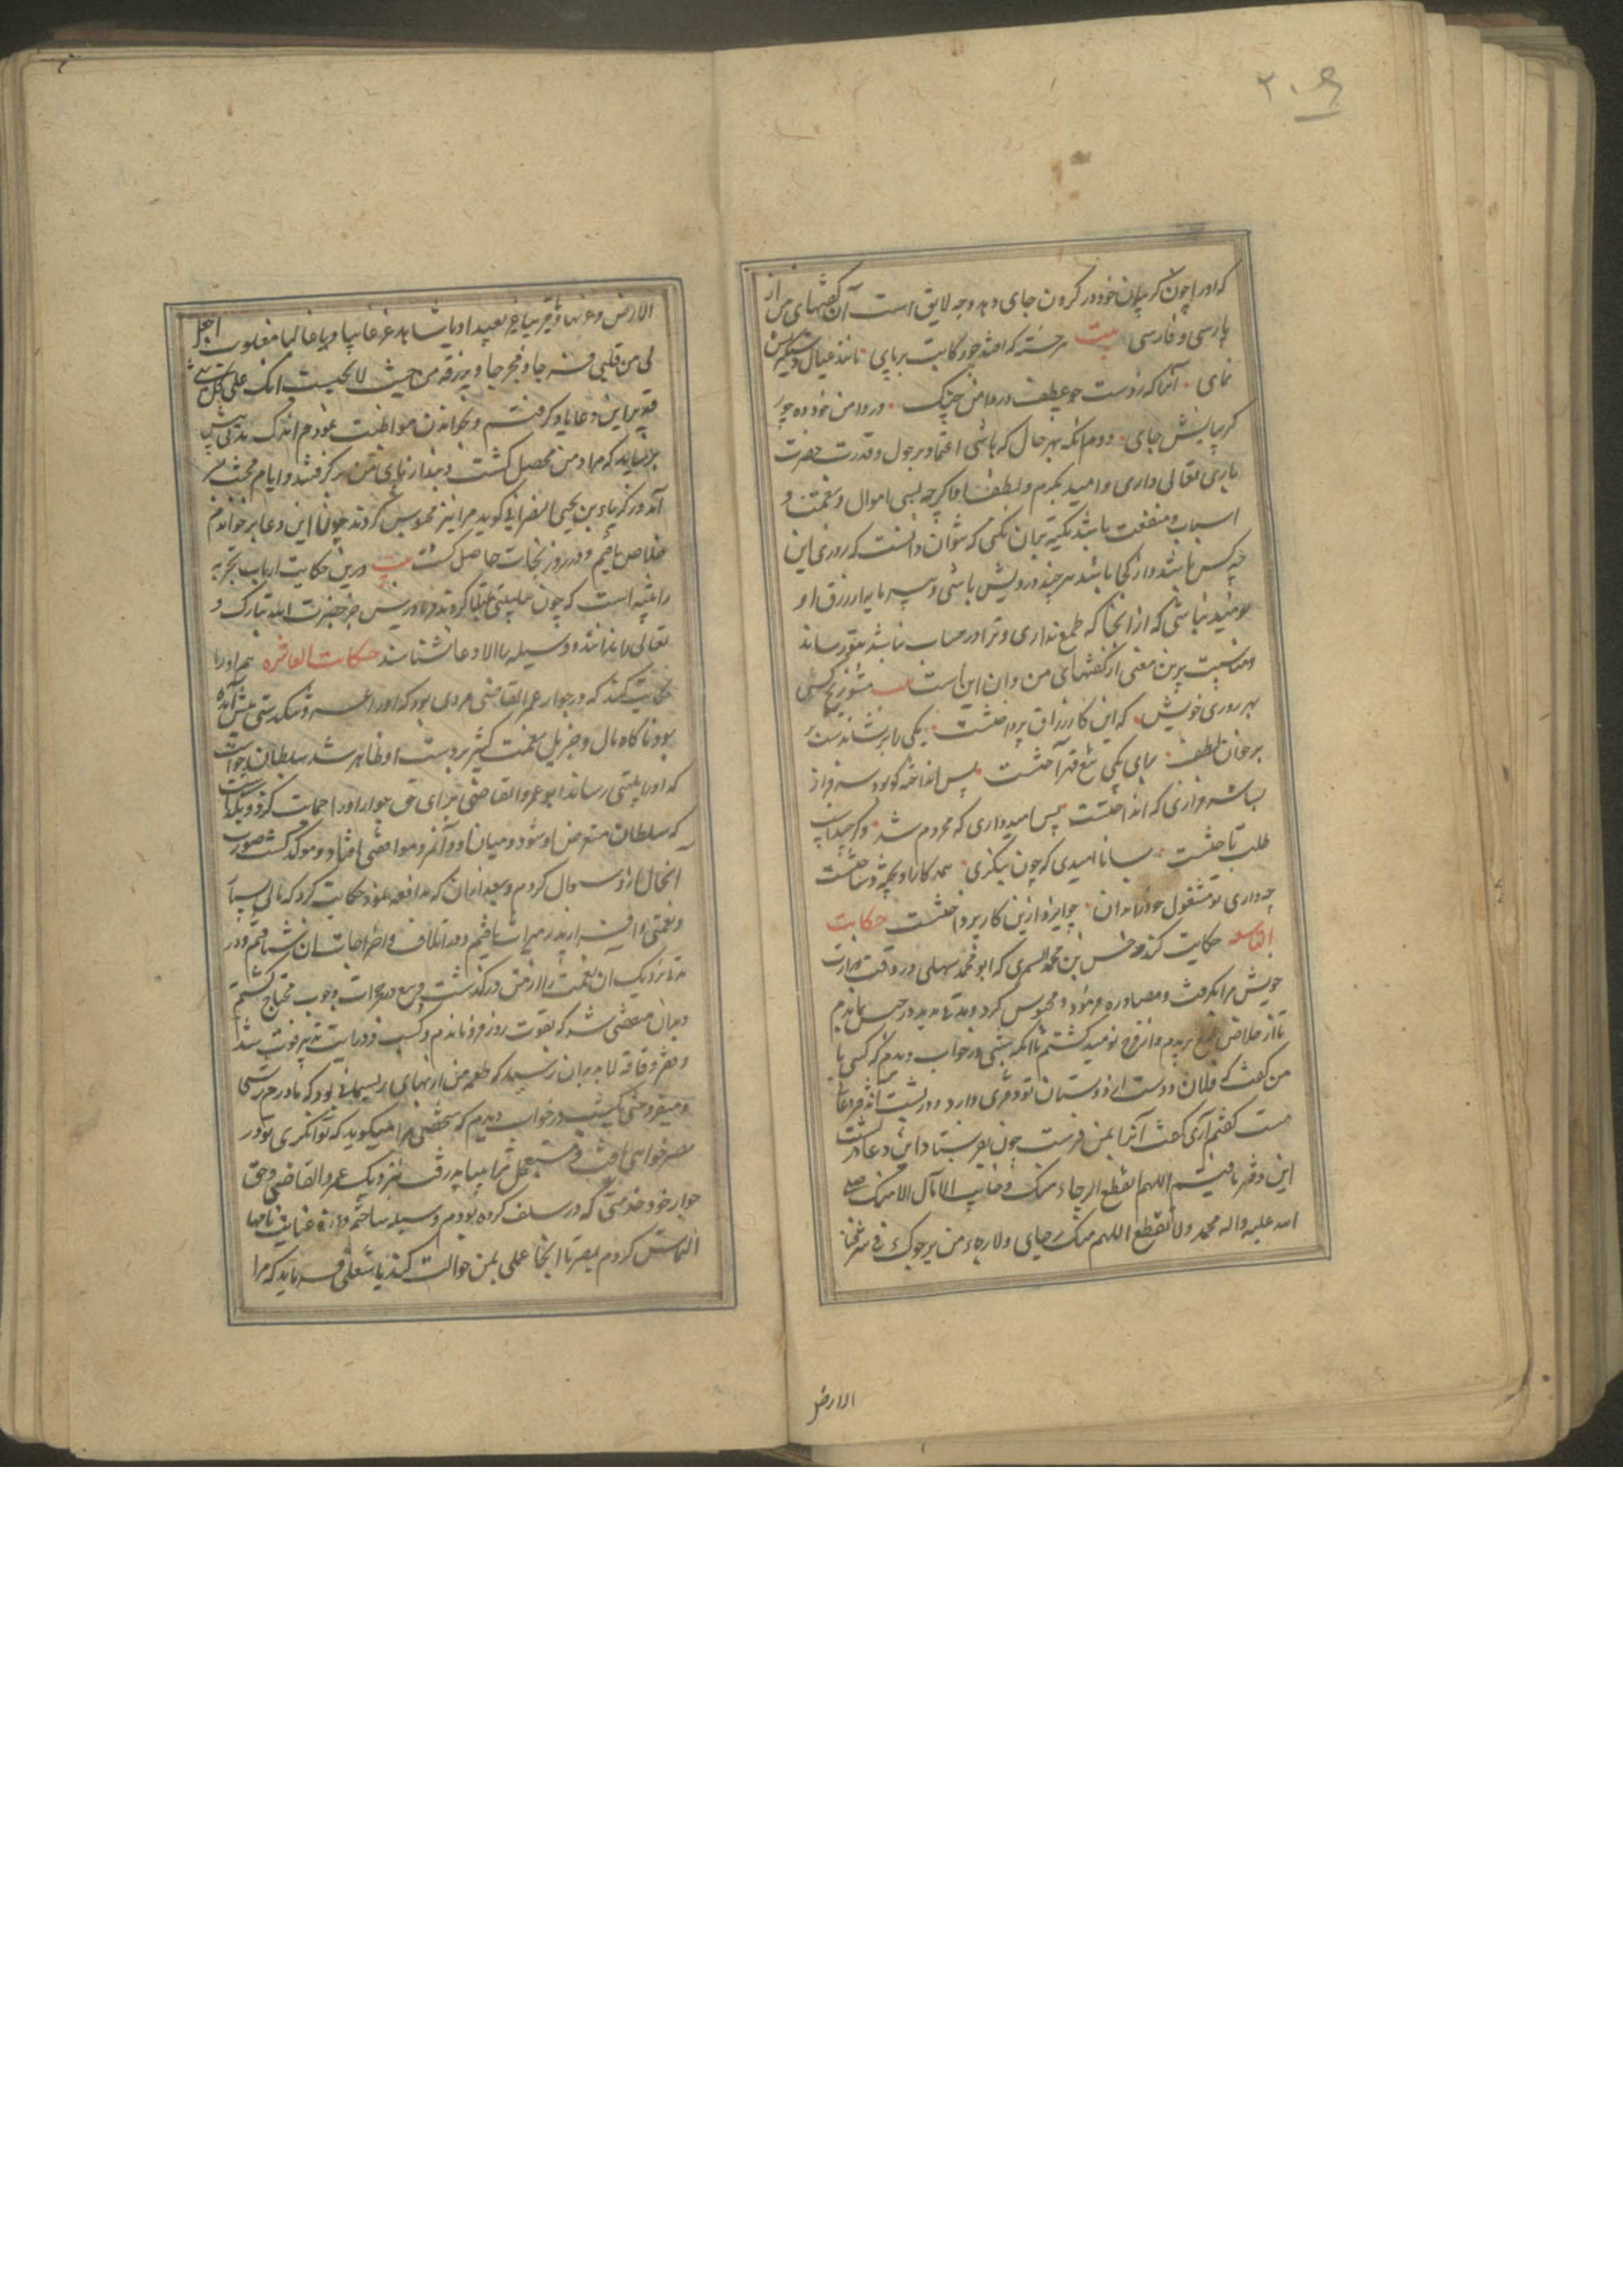 ۲۰۹
که او را چون گریبان خود در گردن جای دهد وجه لایق است آن گفتهای من از
پارسی او فارسی بیت هر خسته که افتد چو رکابت بر پای مانند عنان دستگیریش
نمای آنرا که زدست جو عطف در دامن چنگ در دامن خود ده چو
گریبانش جای دوم آنکه بهر حال که باشی اعتماد بر حول و قدرت حضرت
باری تعالی داری و امید بکرم و لطف او اگر چه بسی اموال و نعمت و
اسباب و منفعت باشد تکیه بران نکنی که نتوان دانست که روزی این
چه کس باشد و از کجا باشد هر چند درویش باشی و بی مایه از رزق او
نومید نباشی که از آنجا که طمع نداری و ترا در حساب نباشد بتو رساند
و مناسب برین معنی از گفتهای من وان این است مشو رنج کسی
بهر روزی خویش که این کار رزاق پرداختست یکی را برشاندست
بر خوان لطف برای یکی تیغ قهر آختست پس انداخته کو بود سرفراز
بسا سرفرازی که انداختست بس امیدواری که محروم شد و گر چند اسب
طلب تاختست بسا ناامیدی که چون بنگری همه کار او بخچه و ساختست
چه داری تو مشغول خود را بدان چو ایزد ازین کار پرداختست حکایت
التاسعه حکایت کند حسن بن محمد السمری که ابو محمد مهلبی در وقت وزارت
خویش مرا بگرفت و مصادره فرمود و محبوس کرد و مدتی مدید در حبس بماندم
تا از خلاص طمع بریدم و از فرج نومید گشتم تا آنکه شبی در خواب دیدم که کسی با
من گفت که فلان دوست از دوستان تو دفتری دارد و در پشت آن دفتر دعائی
هست گفتم آری گفت آنرا بمن فرست چون بفرستاد این دعا در پشت
این دفتر یافتم اللهم انقطع الرجاء منک و خابت الآمال الا منک صلی
الله علیه واله محمد ولا تقطع اللهم منک رجای ولا رجاء من یرجوک فی شرق
الارض
الارض و غربها و قریبا غیر بعید او یا شاهدا غیر غایب او یا غالبا غیر مغلوب اجعل
لی من قلبی فرجا و مخرجا و یرزقه من حیث لا یحتسب انک علی کل شی
قدیر این دعا یاد گرفتم و بخواندن مواظبت نمودم اندک مدتی پیش
بر نیاید که مراد من محصل گشت و بند از پای من بر گرفتند و ایام محنت بسر
آمد و زکریا بن یحیی النصرانی گوید مرا نیز محبوس کردند چون این دعا بر خواندم
خلاص یافتم و در روز نجات حاصل گشت بیت و درین حکایت ارباب تجربه
را تنبیه است که چون ببلیتی مبتلا گردند فریادرس جز حضرت الله تبارک و
تعالی را ندانند و وسیله بالا دعا شناسند حکایت العاشره هم او را
حکایت کند که در جوار عمر القاضی مردی بود که او را عسر و تنگدستی پیش آمده
بود ناگاه مال و جزیل نعمت کثیر بر دست او ظاهر شد سلطان خواست
که او را بلیتی رساند ابو عمر و القاضی برای حق جوار او را حمایت کرد و نگذاشت
که سلطان متعرض او شود و میان او و آنمرد موافقتی افتاد و موکد گشت صورت
آنحال از او سوال کردم و بعد از آن که مدافعه نمود حکایت کرد که مالی بسیار
و نعمتی وافر از پدر میراث یافتم و در اتلاف و اخراجات آن شتافتم و در
مدت نزدیک آن نعمت را از من در گذشت و بیع در مجرات وجوب محتاج گشتم
و بدان منقضی شد که بقوت روز فرو ماندم و کسب و درایت تدبیر فوت شد
و فقر و فاقه لابد بران رسید که طعمه من از بهای ریسمانی بود که مادرم رشتی
و میفروختی یکشب در خواب دیدم که شخصی مرا میگوید که توانگری تو در
مصر خواهی یافت مستعجل شتاب باید رفت نزدیک عمر و القاضی و حق
جوار خود و خدمتی که در سلف کرده بودم وسیله ساختم و عنایت نامها
التماس کردم بمصر تا آنجا عملی بمن حوالت کنند یا شغلی فرمایند که مرا